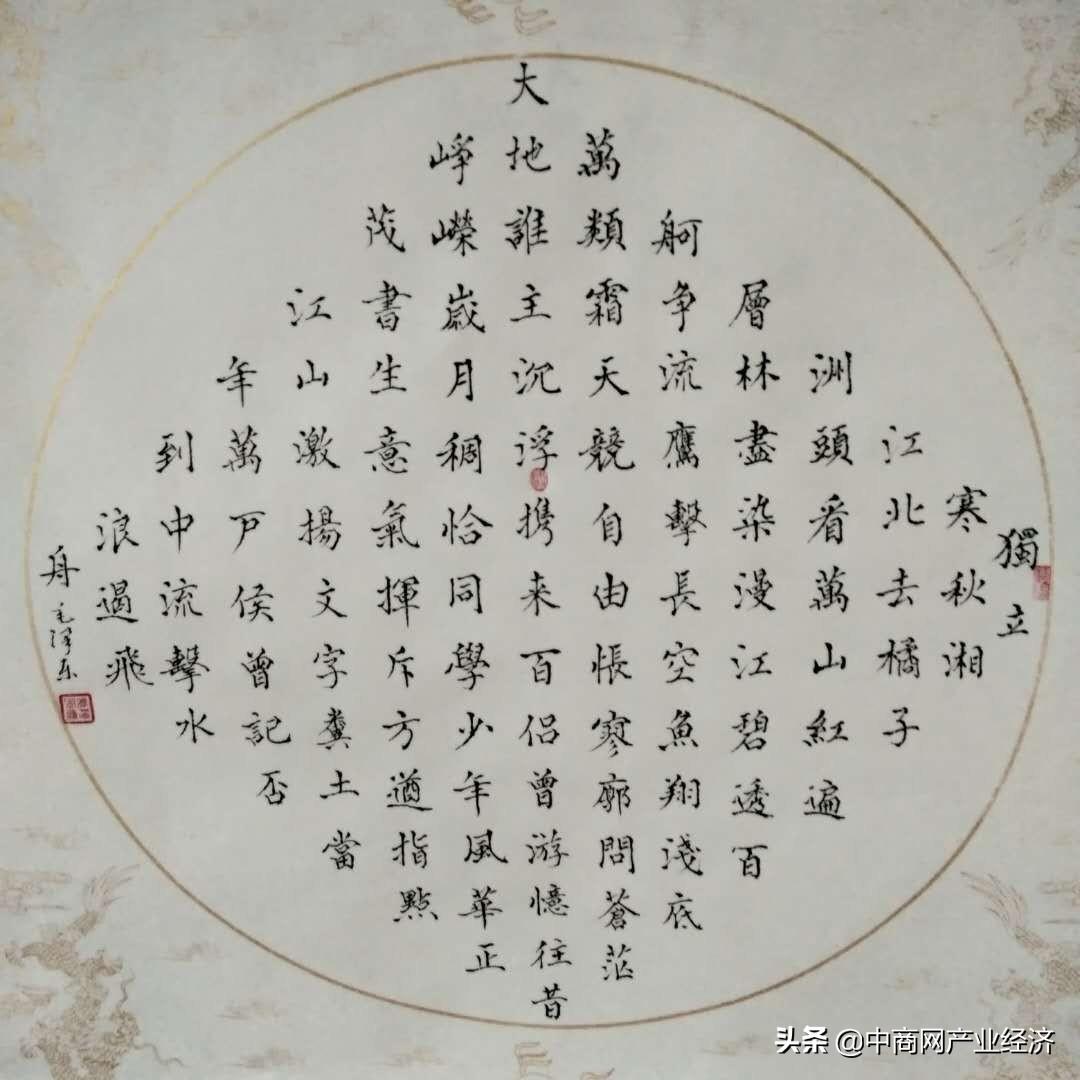 獨立
寒秋湘
江北去橘子
洲頭看萬山紅遍
層林盡染漫江碧透百
舸争流鷹擊長空魚翔淺底
萬類霜天競自由悵寥廓問蒼茫
大地誰主沉浮携来百侣曾游憶往昔
峥嶸嵗月稠恰同學少年風華正
茂書生意氣揮斥方遒指點
江山激揚文字糞土當
年萬戶侯曾記否
到中流擊水
浪遏飛
舟 毛泽东
头条 @中商网产业经济